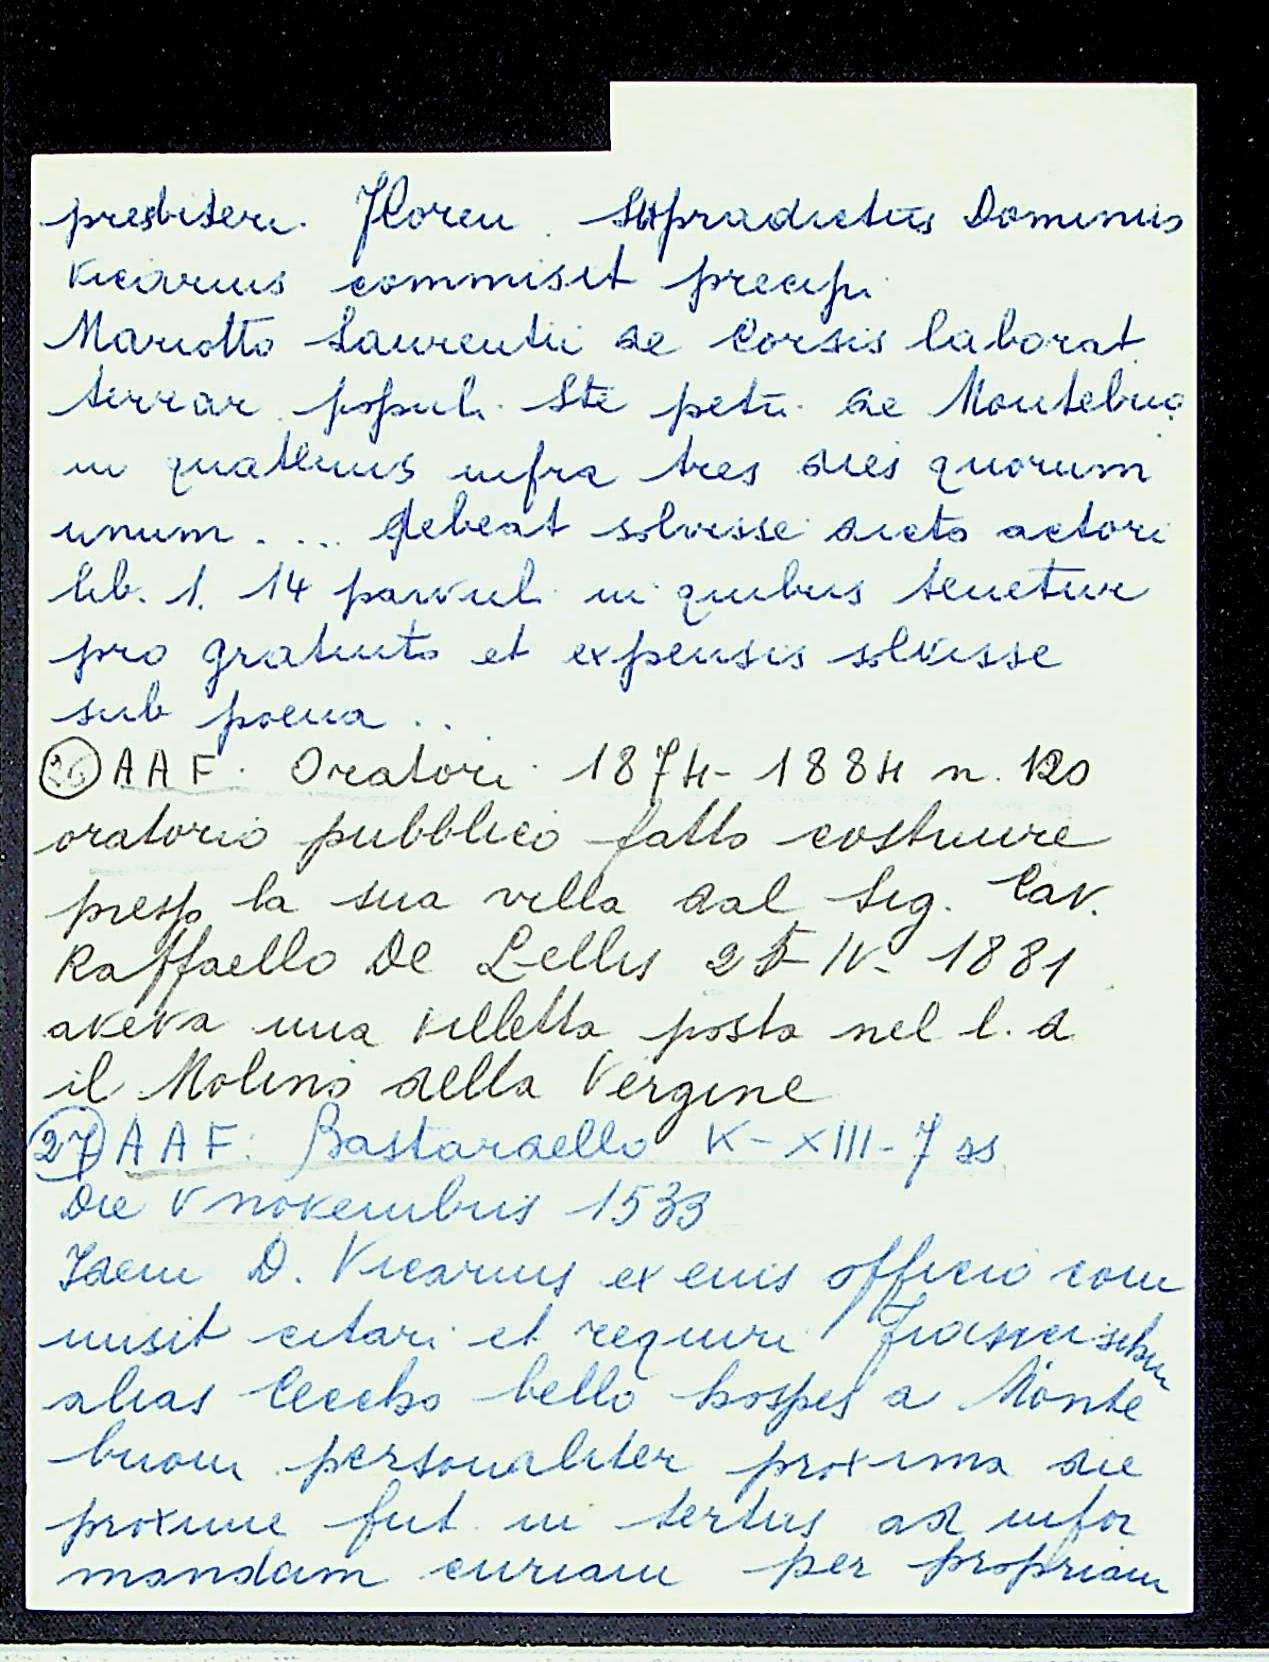 presbiteri. Floren. Supradictus Dominus
Vicarius commisit precipi
Mariotto Laurentii de Corsis laborat.
terrar. populi. Ste petri. de Montebuo.
in quatenus infra tres dies quorum
unum.... debeat solvisse dicto actori
lib. 1. 14 parvul. in quibus tenetur
pro gratuito et expensis solvisse
sub poena ..
26 AAF. Oratori 1874-1884 n. 120
oratorio pubblico fatto costruire
presso la sua villa dal Sig. Cav.
Raffaello De Lellis 25-IV-1881
aveva una villetta posta nel l. d.
il Molino della Vergine
27 AAF. Bastardello K-XIII-7 ss
Die V novembris 1533
Idem D. Vicarius ex eius officio com
misit citari et requiri
alias Ceccho bello hospes a Monte
buoni personaliter proxima die
proxime fut. in tertiis ad infor
mandam curiam per propriam